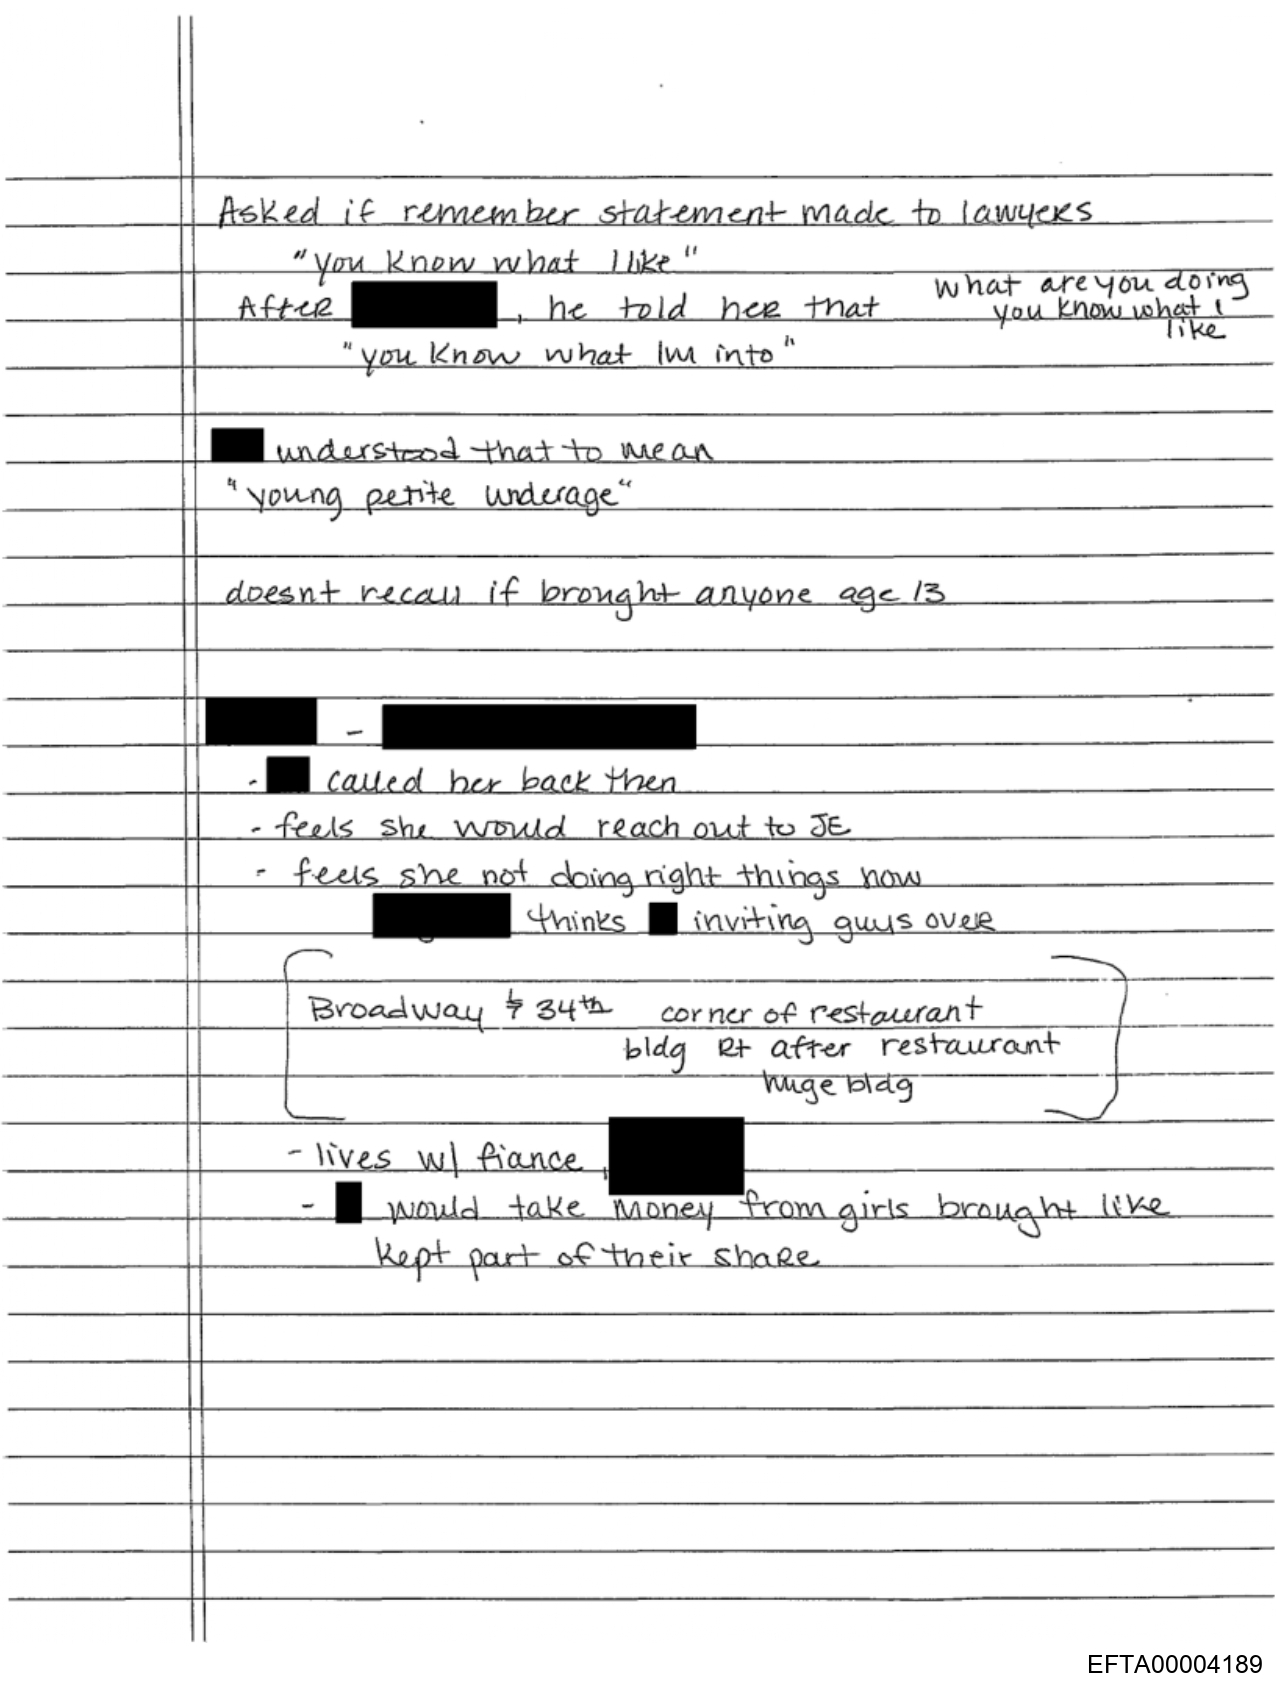 Asked if remember statement made to lawyers
"you know what I like"
After , he told her that
what are you doing
you know what I
like
"you know what Im into"
understood that to mean
"young petite underage"
doesnt recall if brought anyone age 13
-
- called her back then
- feels she would reach out to JE
- feels she not doing right things now
thinks inviting guys over
Broadway & 34th corner of restaurant
bldg Rt after restaurant
huge bldg
- lives w/ fiance,
- would take money from girls brought like
kept part of their share
EFTA00004189